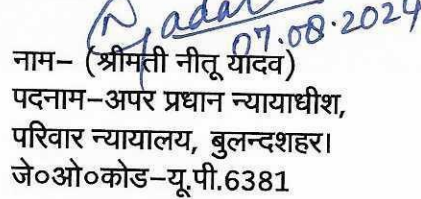 Yadav
07.08.2024
नाम– (श्रीमती नीतू यादव)
पदनाम–अपर प्रधान न्यायाधीश,
परिवार न्यायालय, बुलन्दशहर।
जे०ओ०कोड–यू.पी.6381